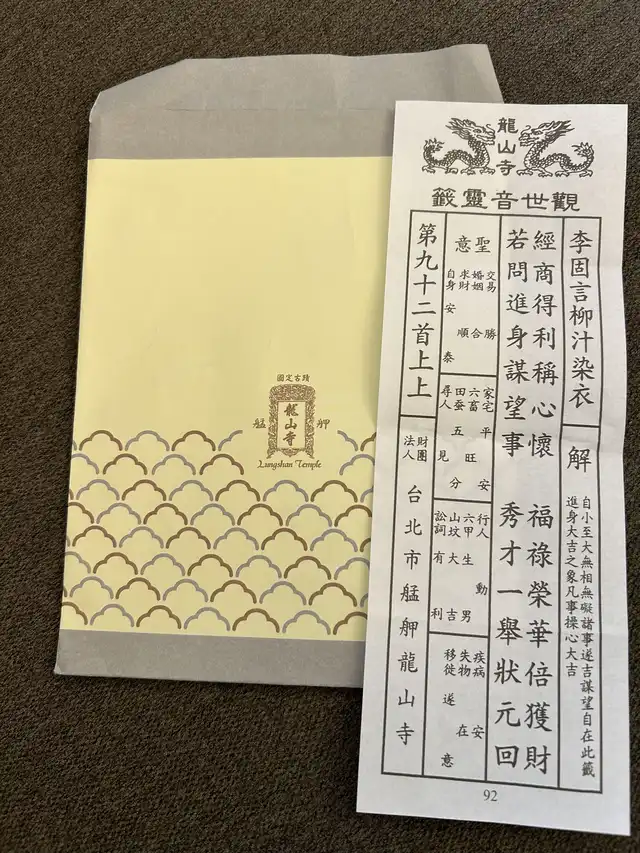 國定古蹟
艋舺
龍山寺
Lungshan Temple
龍山寺
觀世音靈籤
李固言柳汁染衣
解
自小至大無相無礙諸事遂吉謀望自在此籤
進身大吉之象凡事操心大吉
經商得利稱心懷 福祿榮華倍獲財
若問進身謀望事 秀才一舉狀元回
聖意
交易勝
婚姻合
求財順
自身安泰
家宅平安
六畜旺
田蚕五分
尋人見
行人動
六甲生男
山坟大吉
訟詞有利
疾病安
失物在
移徙遂意
第九十二首上上
財團法人 台北市艋舺龍山寺
92